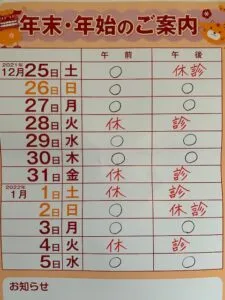 年末・年始のご案内
午前 午後
2021年
12月 25日 土 ○ 休診
26日 日 ○ ○
27日 月 ○ ○
28日 火 休 診
29日 水 ○ ○
30日 木 ○ ○
31日 金 休 診
2022年
1月 1日 土 休 診
2日 日 ○ 休診
3日 月 ○ ○
4日 火 休 診
5日 水 ○ ○
お知らせ